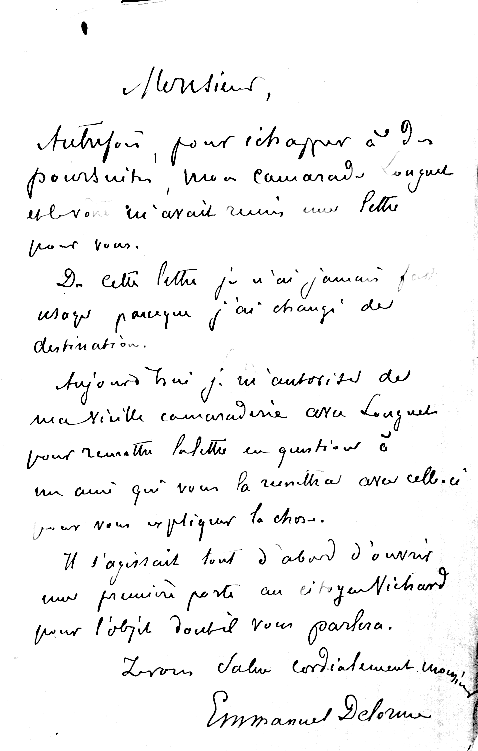 Monsieur,
Autrefois, pour échapper à des
poursuites, mon camarade Longuet
et le vôtre m'avait remis une lettre
pour vous.
De cette lettre je n'ai jamais fait
usage parceque j'ai changé de
destination.
Aujourd'hui je m'autorise de
ma vieille camaraderie avec Longuet
pour remettre la lettre en question à
un ami qui vous la remettra avec celle-ci
pour vous expliquer la chose.
Il s'agissait tout d'abord d'ouvrir
une première porte au citoyen Vichard
pour l'objet dont il vous parlera.
Je vous salue cordialement monsieur
Emmanuel Delorme